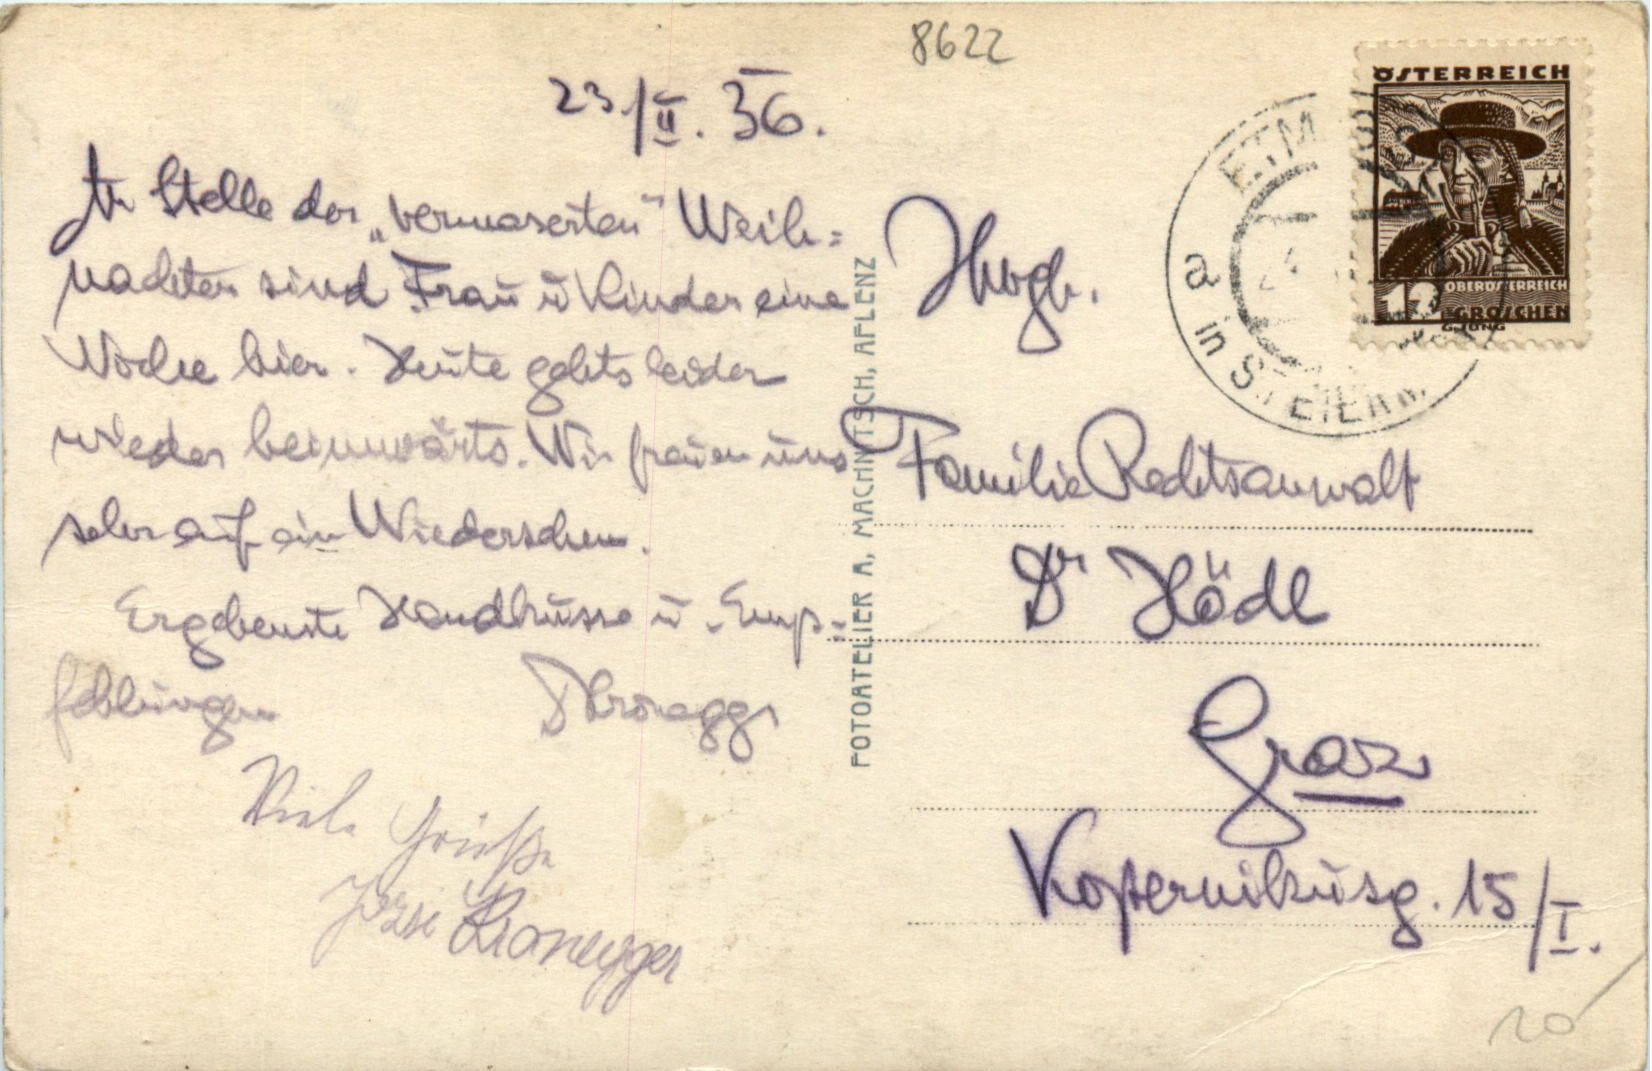 8622
23./II. 36.
An Stelle der „vermaserten" Weih=
nachten sind Frau u Kinder eine
Woche hier. Heute gehts leider
wieder heimwärts. Wir freuen uns
sehr auf ein Wiedersehen.
Ergebenste Handküsse u. Emp-
fehlungen
Viele Grüße
Kronegger
FOTOATELIER A. MACHNITSCH, AFLENZ
Hwgb.
Familie Rechtsanwalt
Dr Hödl
Graz
Kopernikusg. 15/I.
ÖSTERREICH
OBERÖSTERREICH
12 GROSCHEN
G. JUNG
a in STEIERM
20